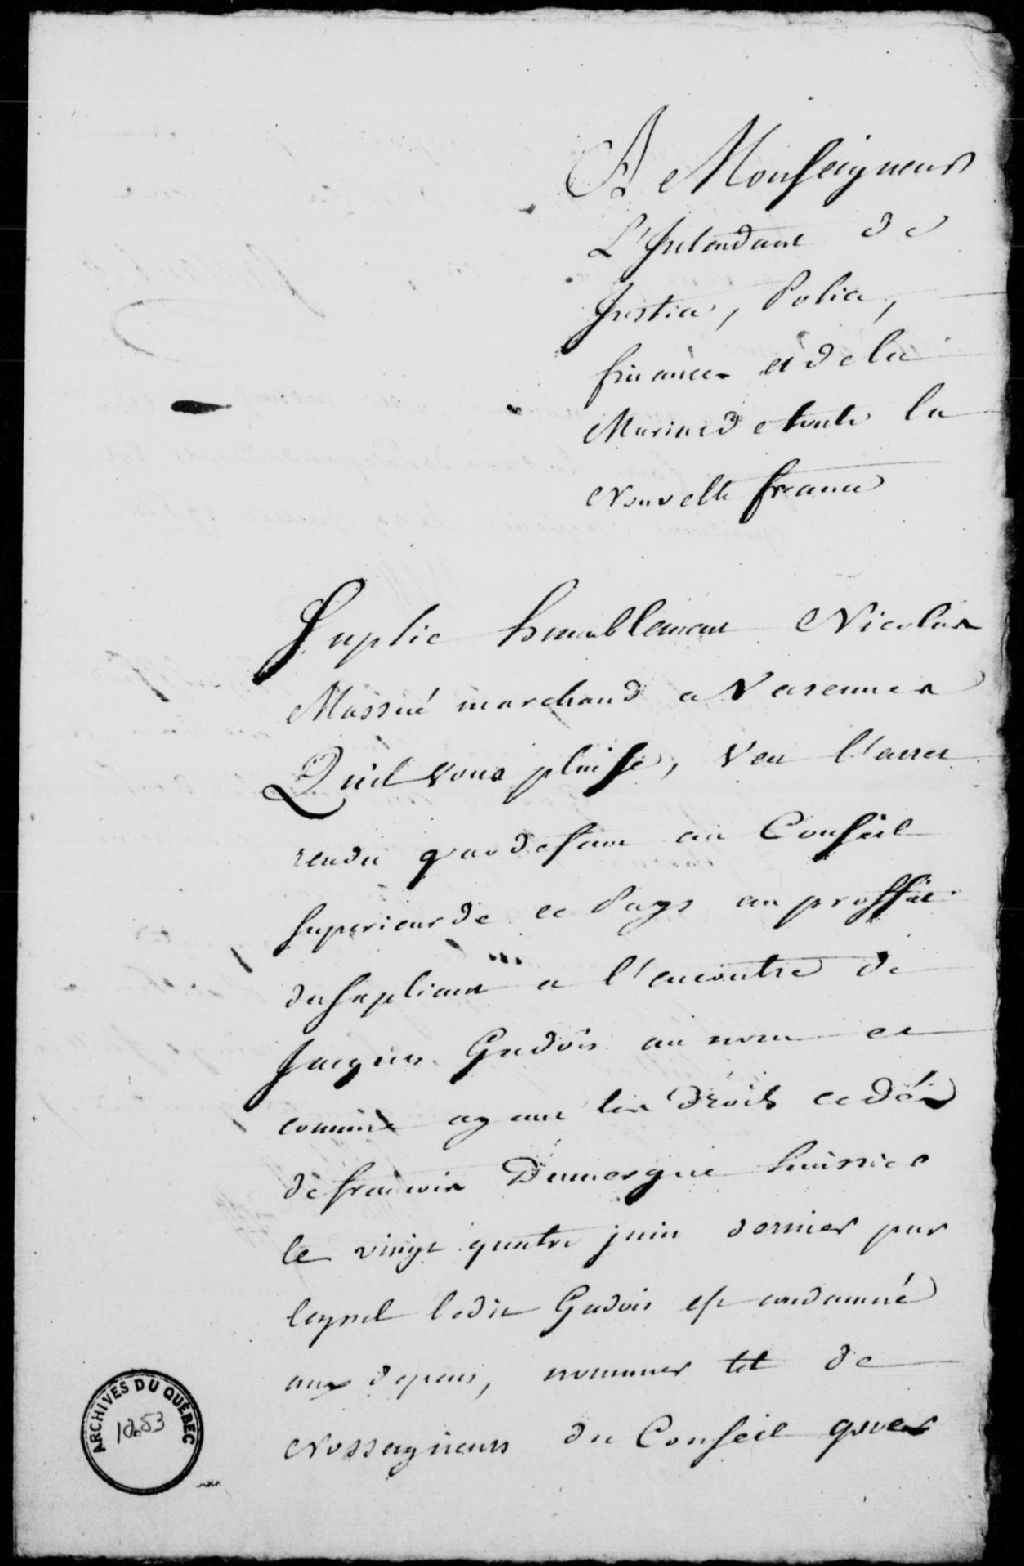 A Monseigneur
L'Intendant de
Justice, Police,
finances et de la
Marine de toute la
Nouvelle france
Suplie humblement Nicolas
Massué marchand a Varennes
Quil vous plaise, Veu l'arrest
rendu par defaut au Conseil
Superieur de ce Pays au proffit
du supliant a l'encontre de
Jacques Gadois au nom et
comme ayant les droits cedés
de francois Dumergue huissier
le vingt quatre juin dernier par
lequel ledit Gadois est condamné
aux depens, nommer tel de
Nosseigneurs du Conseil quver
ARCHIVES DU QUÉBEC